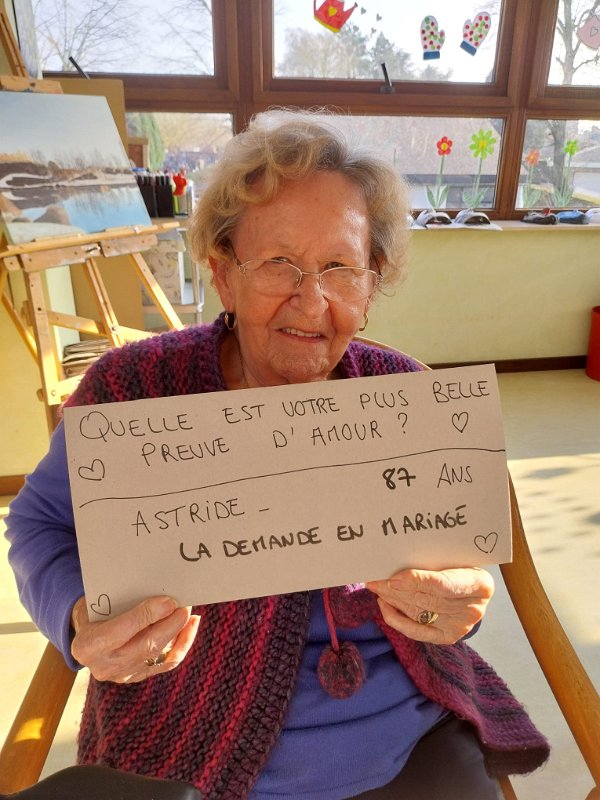 QUELLE EST VOTRE PLUS BELLE
PREUVE D'AMOUR ?
ASTRIDE - 87 ANS
LA DEMANDE EN MARIAGE